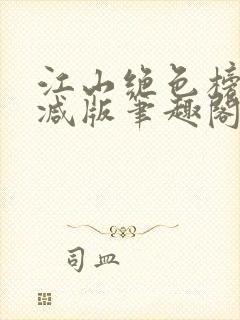 江山绝色榜
减版笔趣阁
司皿